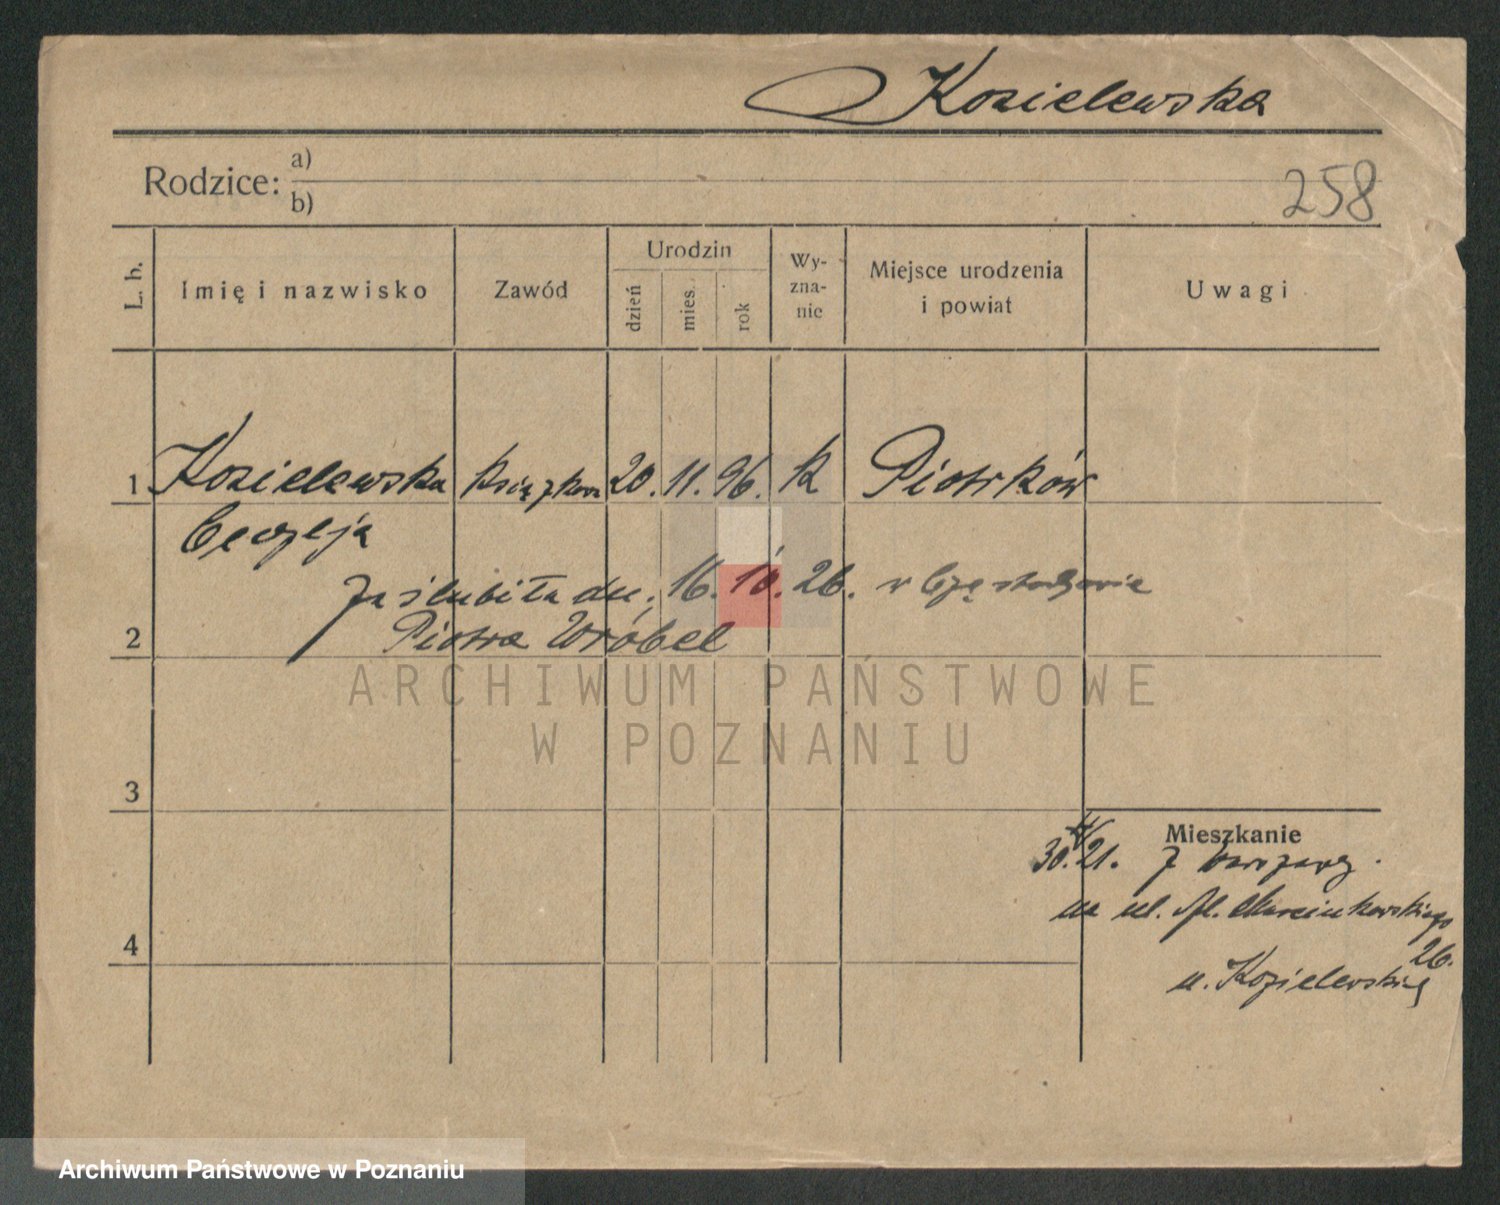 Kozielewska
Rodzice: a)
b)
258
L. b.
Imię i nazwisko
Zawód
Urodzin
dzień
mies.
rok
Wy-
zna-
nie
Miejsce urodzenia
i powiat
Uwagi
1 Kozielewska 20. 11. 96. k Piotrków
Cecylja
zaślubiła dn. 16. 10. 26. w Częstochowie
2 Piotra Wróbel
ARCHIWUM PAŃSTWOWE
W POZNANIU
3
Mieszkanie
30. 21. z Warszawy
na ul. Al. Marcinkowskiego
26.
4
u. Kozielewskiej
Archiwum Państwowe w Poznaniu